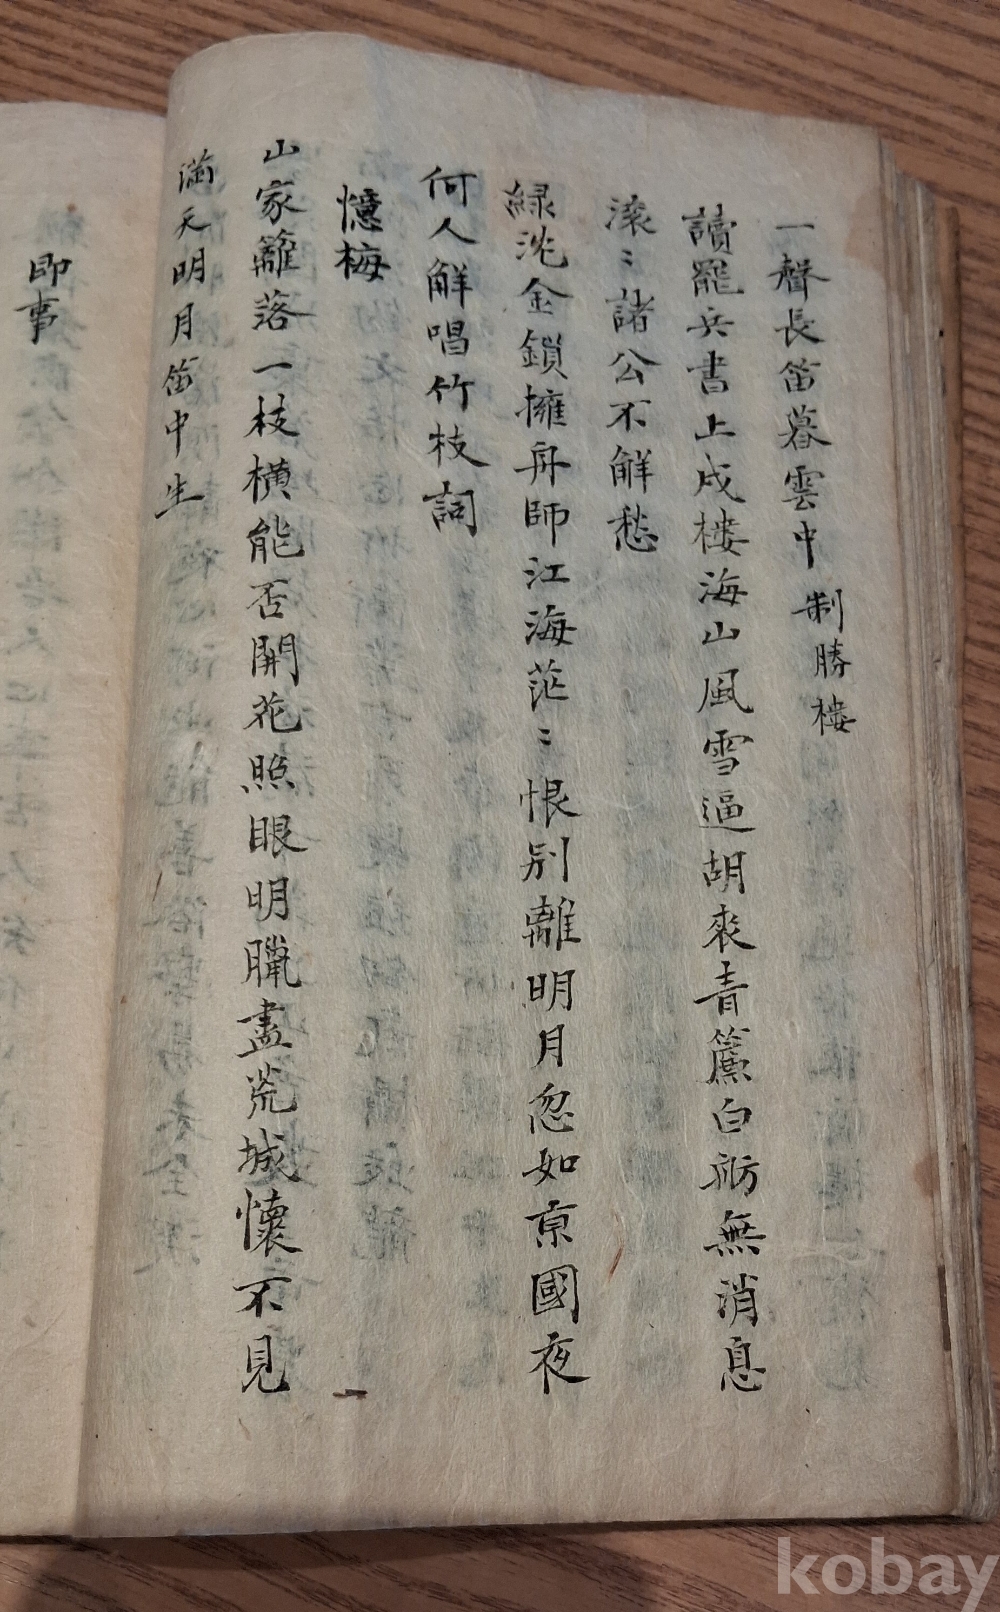 一聲長笛暮雲中 制勝楼
讀罷兵書上戍楼海山風雪逼胡裘青簾白舫無消息
滚〻諸公不解愁
緑沈金鎖擁舟師江海茫〻恨别離明月忽如京國夜
何人解唱竹枝詞
憶梅
山家籬落一枝横能否開花照眼明臘盡荒城懷不見
満天明月笛中生
即事
kobay